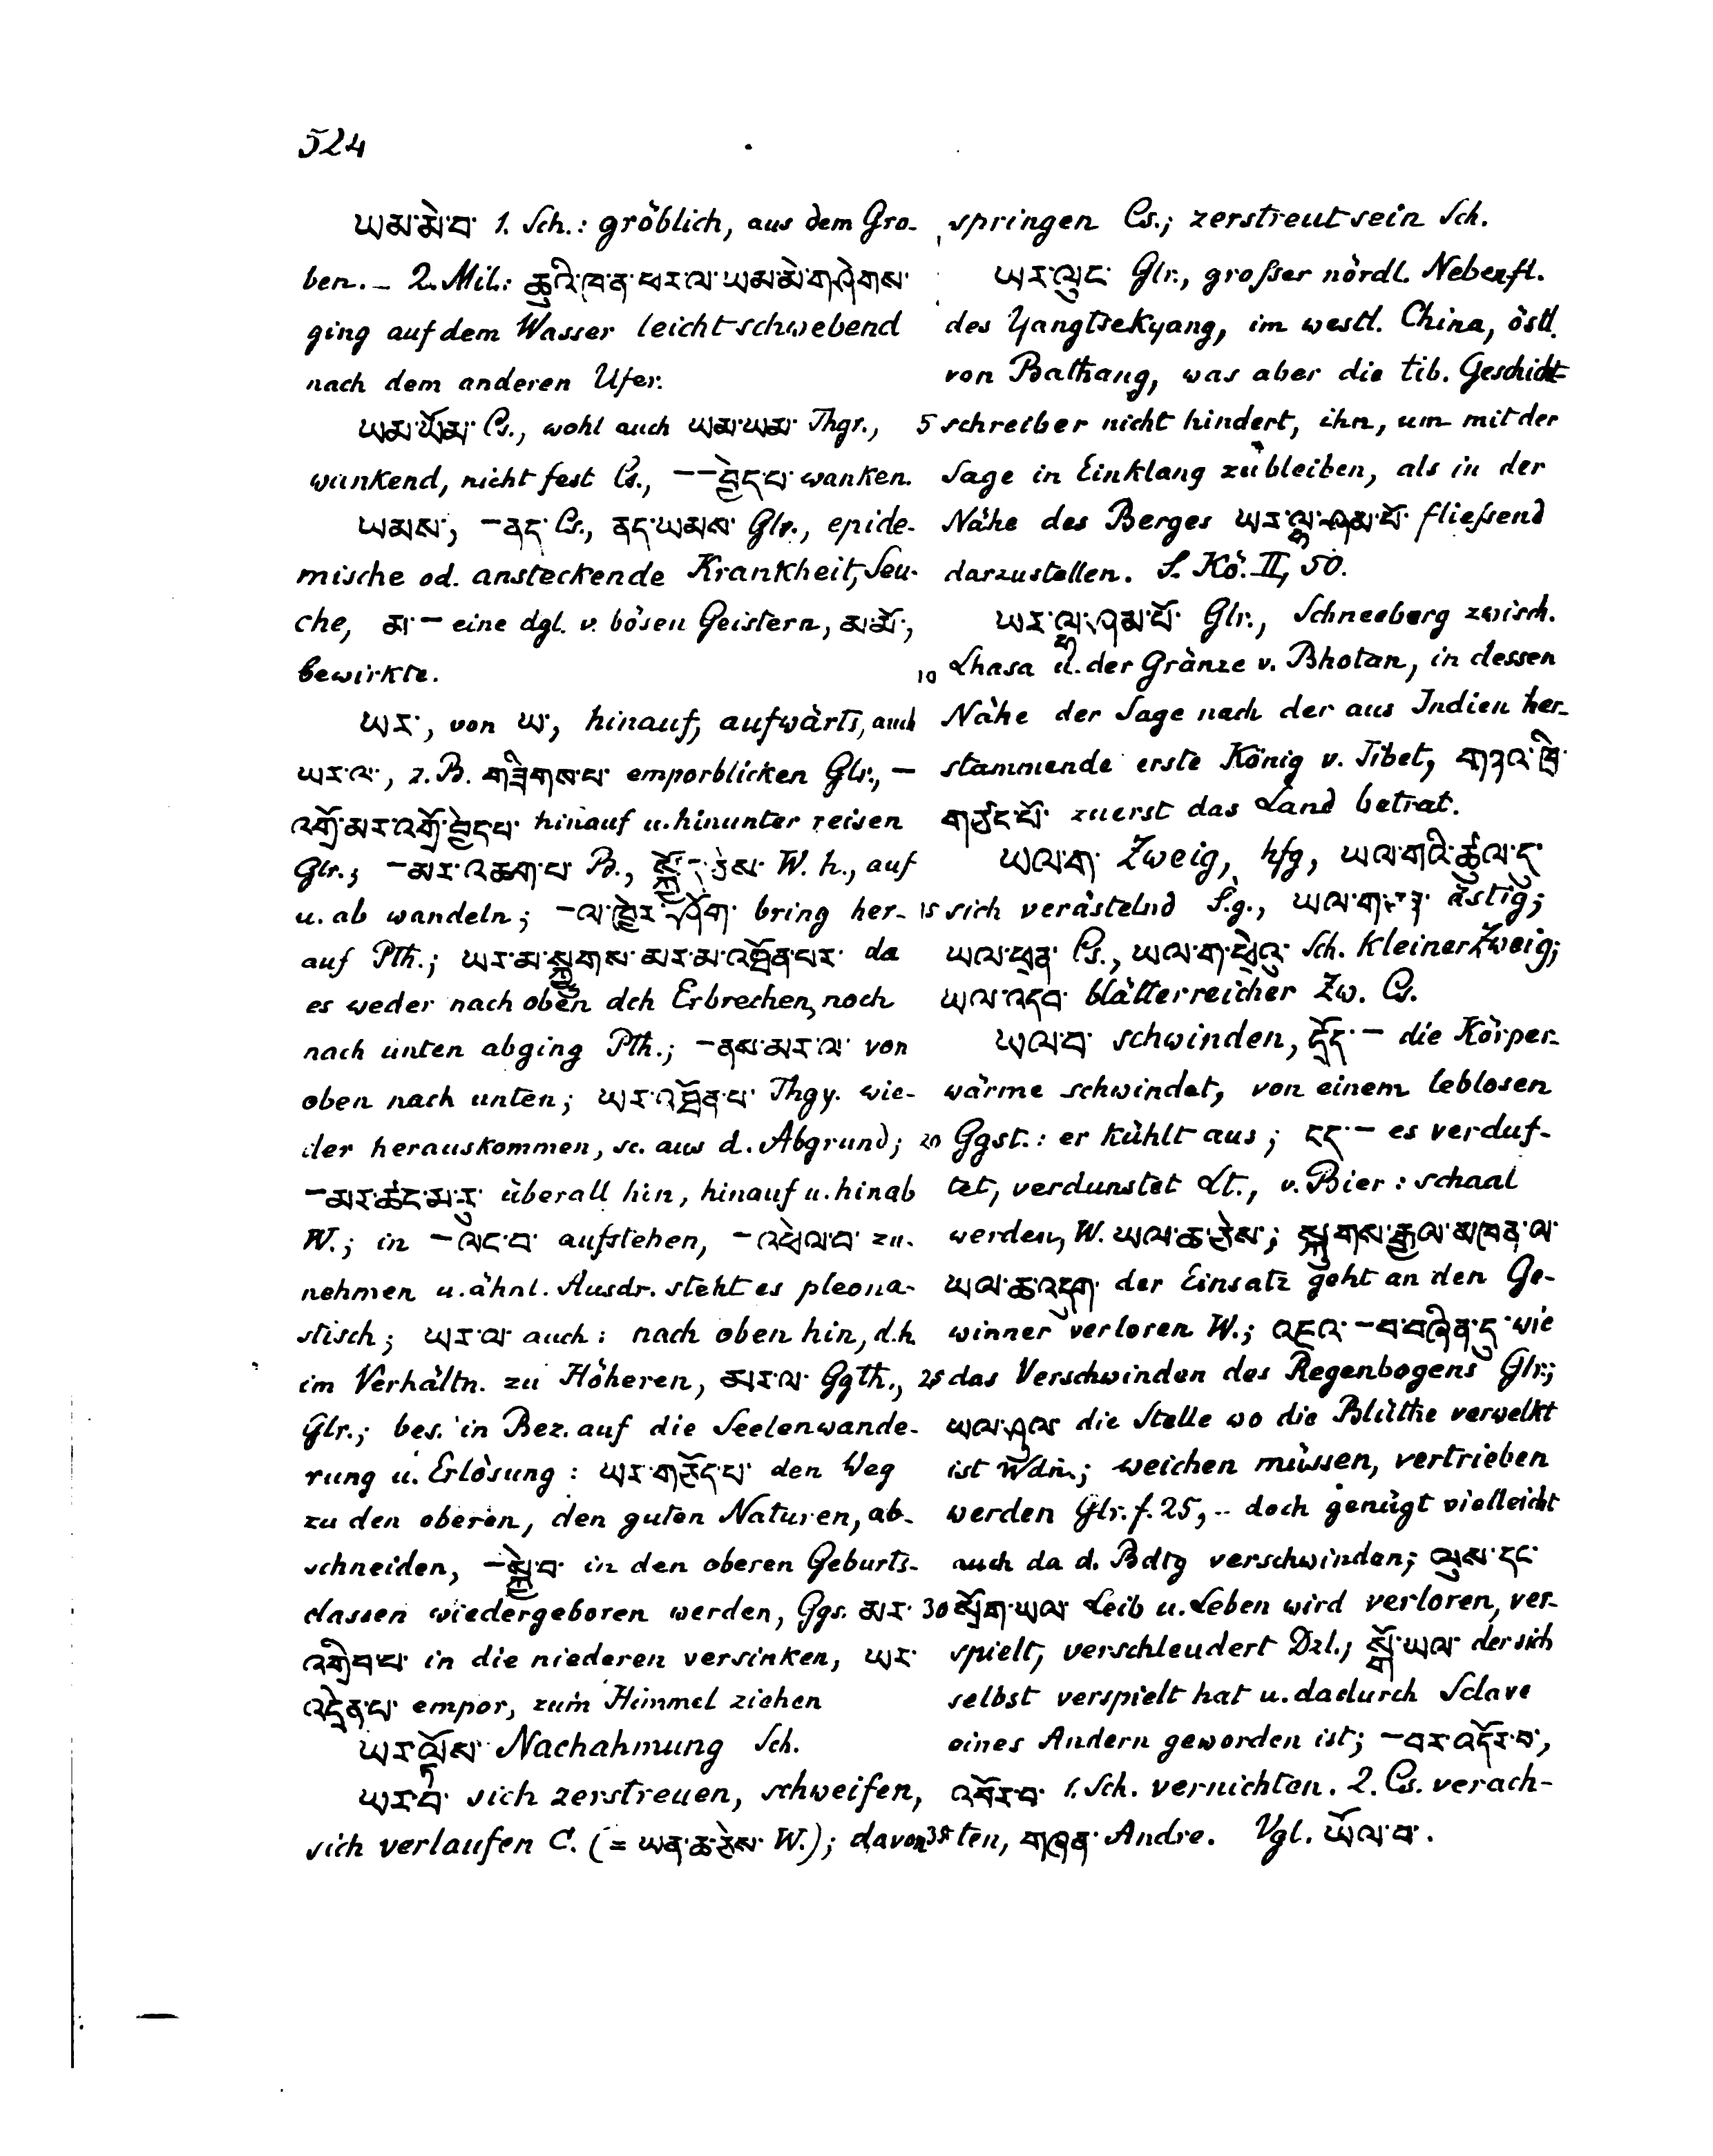 524
ཡམ་མེ་བ་ 1. Sch.: gröblich, aus dem Gro-
ben. – 2. Mil.: ཆུའི་ཁ་ན་ཕར་ལ་ཡམ་མེ་གཤེགས་
ging auf dem Wasser leicht schwebend
nach dem anderen Ufer.
ཡམ་ཡོམ་ Cs., wohl auch ཡམ་ཡམ་ Thgr.,
wankend, nicht fest Cs., – – བྱེད་པ་ wanken.
ཡམས་, – ནད་ Cs., ནད་ཡམས་ Glr., epide-
mische od. ansteckende Krankheit, Seu-
che, མ་ – eine dgl. v. bösen Geistern, མ་མོ་,
bewirkte.
ཡར་, von ཡ་, hinauf, aufwärts, auch
ཡར་ལ་, z. B. གཟིགས་པ་ emporblicken Glr., –
འགྲོ་མར་འགྲོ་བྱེད་པ་ hinauf u. hinunter reisen
Glr.; – མར་འཆག་པ་ B., W. h., auf
u. ab wandeln; – ལ་ཁྱེར་ཤོག་ bring her-
auf Pth.; ཡར་མ་སྐྱུགས་མར་མ་འཐོན་པར་ da
es weder nach oben dch Erbrechen, noch
nach unten abging Pth.; – ནས་མར་ལ་ von
oben nach unten; ཡར་འཐོན་པ་ Thgy. wie-
der herauskommen, sc. aus d. Abgrund;
– མར་ཚང་མ་རུ་ überall hin, hinauf u. hinab
W.; in – ལང་བ་ aufstehen, – འཕེལ་བ་ zu-
nehmen u. ähnl. Ausdr. steht es pleona-
stisch; ཡར་ལ་ auch: nach oben hin, d. h.
im Verhältn. zu Höheren, མར་ལ་ Ggth.,
Glr.; bes. in Bez. auf die Seelenwande-
rung u. Erlösung: ཡར་གཅོད་པ་ den Weg
zu den oberen, den guten Naturen, ab-
schneiden, – སྐྱེ་བ་ in den oberen Geburts-
classen wiedergeboren werden, Ggs. མར་
འགྲིབ་པ་ in die niederen versinken, ཡར་
འདྲེན་པ་ empor, zum Himmel ziehen
ཡར་ལྟོས་ Nachahmung Sch.
ཡར་བ་ sich zerstreuen, schweifen,
sich verlaufen C. (= ཡན་ཆ་ཅེས་ W.); davon
springen Cs.; zerstreut sein Sch.
ཡར་ལུང་ Glr., großer nördl. Nebenfl.
des Yangtsekyang, im westl. China, östl.
von Bathang, was aber die tib. Geschicht-
5 schreiber nicht hindert, ihn, um mit der
Sage in Einklang zu bleiben, als in der
Nähe des Berges ཡར་ལྷ་ཤམ་པོ་ fließend
darzustellen. S. Kö. II, 50.
ཡར་ལྷ་ཤམ་པོ་ Glr., Schneeberg zwisch.
10 Lhasa u. der Gränze v. Bhotan, in dessen
Nähe der Sage nach der aus Indien her-
stammende erste König v. Tibet, གཉའ་ཁྲི་
གཙང་པོ་ zuerst das Land betrat.
ཡལ་ག་ Zweig, hfg, ཡལ་གའི་ཚུལ་དུ་
15 sich verästelnd S.g., ཡལ་ག་ཅན་ ästig;
ཡལ་ཕྲན་ Cs., ཡལ་ག་ཕྲེའུ་ Sch. kleiner Zweig;
ཡལ་འདབ་ blätterreicher Zw. Cs.
ཡལ་བ་ schwinden, དྲོད་ – die Körper-
wärme schwindet, von einem leblosen
20 Ggst.: er kühlt aus; ངད་ – es verduf-
tet, verdunstet Lt., v. Bier: schaal
werden, W. ཡལ་ཆ་ཅེས་; སྐུགས་རྒྱལ་མཁན་ལ་
ཡལ་ཆ་འདུག་ der Einsatz geht an den Ge-
winner verloren W.; འཇའ་ – བ་བཞིན་དུ་ wie
25 das Verschwinden des Regenbogens Glr.;
ཡལ་ཤུལ་ die Stelle wo die Blüthe verwelkt
ist Wdn.; weichen müssen, vertrieben
werden Glr. f. 25, – doch genügt vielleicht
auch da d. Bdtg verschwinden; ལུས་དང་
30 སྲོག་ཡལ་ Leib u. Leben wird verloren, ver-
spielt, verschleudert Dzl.; སྒོ་ཡལ་ der sich
selbst verspielt hat u. dadurch Sclave
eines Andern geworden ist; – བར་འདོར་བ་,
འབོར་བ་ 1. Sch. vernichten. 2. Cs. verach-
35 ten, གཞན་ Andre. Vgl. ཡོལ་བ་.